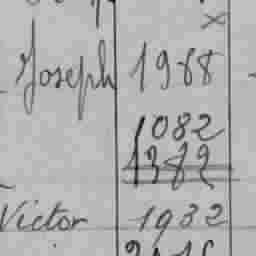 x
Joseph 1968
1082
1382
Victor 1932